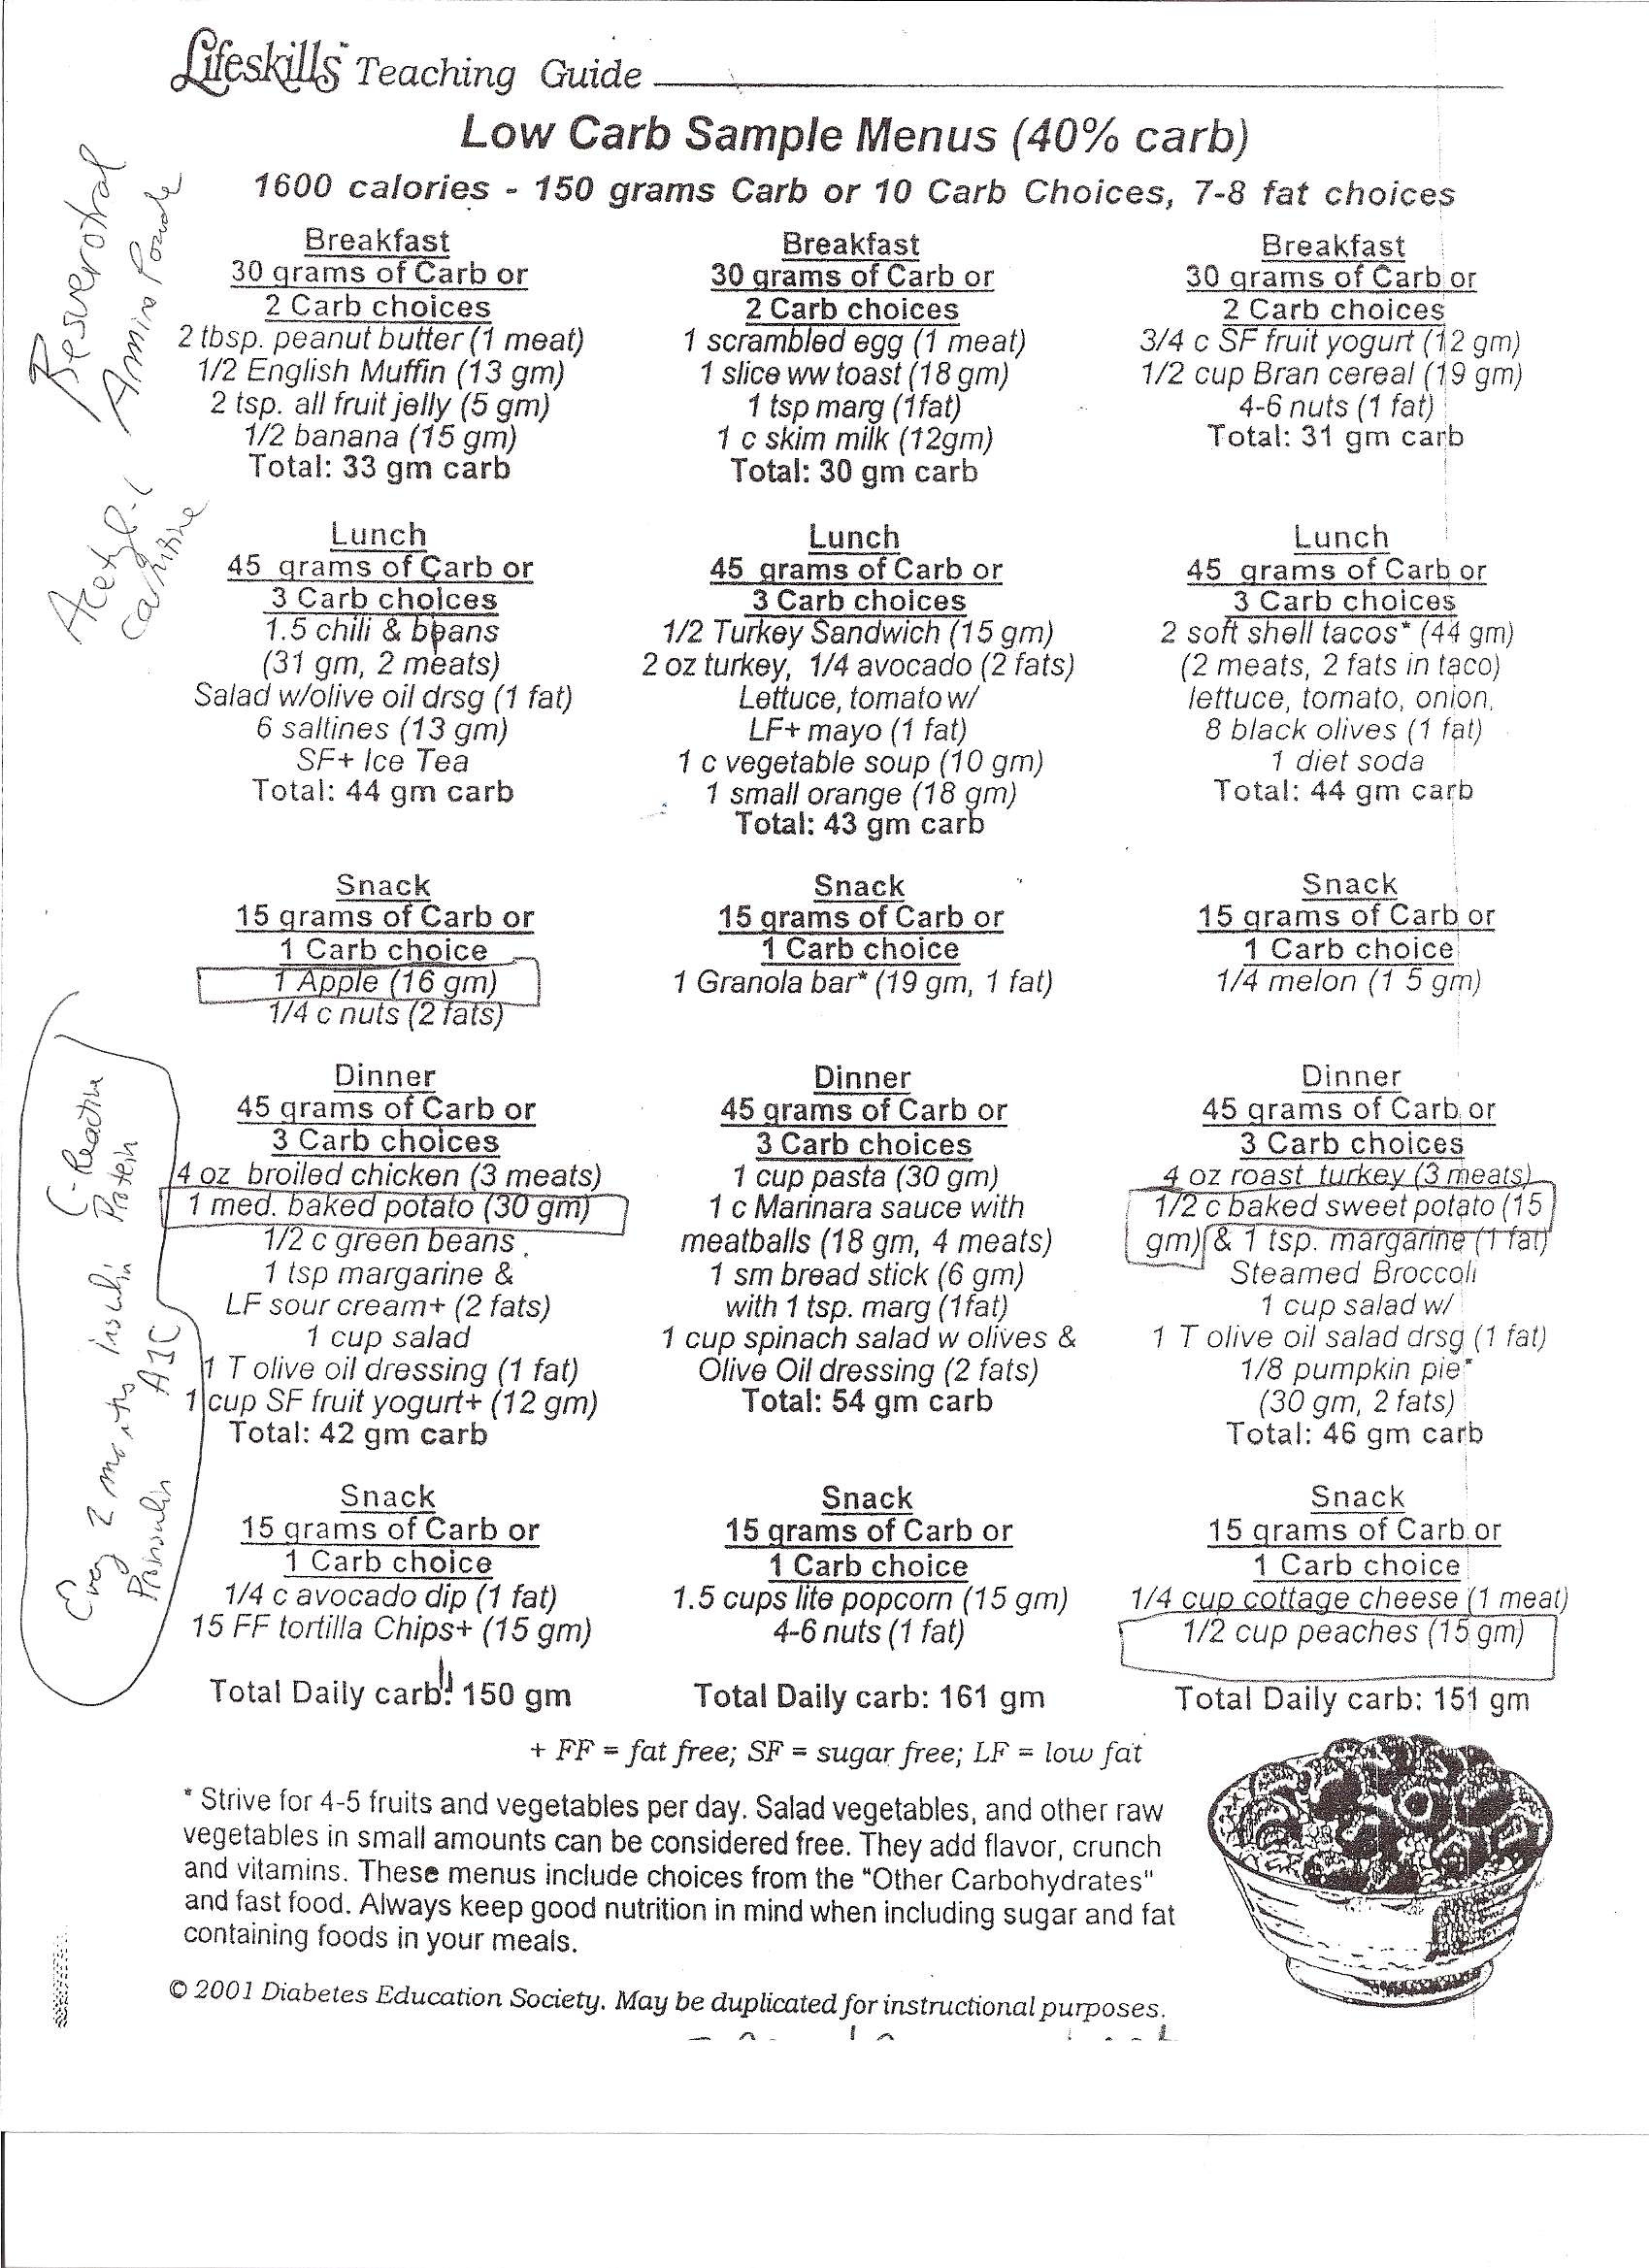 Lifeskills™ Teaching Guide
Low Carb Sample Menus (40% carb)
1600 calories - 150 grams Carb or 10 Carb Choices, 7-8 fat choices
Breakfast
30 grams of Carb or
2 Carb choices
2 tbsp. peanut butter (1 meat)
1/2 English Muffin (13 gm)
2 tsp. all fruit jelly (5 gm)
1/2 banana (15 gm)
Total: 33 gm carb
Lunch
45 grams of Carb or
3 Carb choices
1.5 chili & beans
(31 gm, 2 meats)
Salad w/olive oil drsg (1 fat)
6 saltines (13 gm)
SF+ Ice Tea
Total: 44 gm carb
Snack
15 grams of Carb or
1 Carb choice
1 Apple (16 gm)
1/4 c nuts (2 fats)
Dinner
45 grams of Carb or
3 Carb choices
4 oz broiled chicken (3 meats)
1 med. baked potato (30 gm)
1/2 c green beans
1 tsp margarine &
LF sour cream+ (2 fats)
1 cup salad
1 T olive oil dressing (1 fat)
1 cup SF fruit yogurt+ (12 gm)
Total: 42 gm carb
Snack
15 grams of Carb or
1 Carb choice
1/4 c avocado dip (1 fat)
15 FF tortilla Chips+ (15 gm)
Total Daily carb: 150 gm
Breakfast
30 grams of Carb or
2 Carb choices
1 scrambled egg (1 meat)
1 slice ww toast (18 gm)
1 tsp marg (1fat)
1 c skim milk (12gm)
Total: 30 gm carb
Lunch
45 grams of Carb or
3 Carb choices
1/2 Turkey Sandwich (15 gm)
2 oz turkey, 1/4 avocado (2 fats)
Lettuce, tomato w/
LF+ mayo (1 fat)
1 c vegetable soup (10 gm)
1 small orange (18 gm)
Total: 43 gm carb
Snack
15 grams of Carb or
1 Carb choice
1 Granola bar* (19 gm, 1 fat)
Dinner
45 grams of Carb or
3 Carb choices
1 cup pasta (30 gm)
1 c Marinara sauce with
meatballs (18 gm, 4 meats)
1 sm bread stick (6 gm)
with 1 tsp. marg (1fat)
1 cup spinach salad w olives &
Olive Oil dressing (2 fats)
Total: 54 gm carb
Snack
15 grams of Carb or
1 Carb choice
1.5 cups lite popcorn (15 gm)
4-6 nuts (1 fat)
Total Daily carb: 161 gm
Breakfast
30 grams of Carb or
2 Carb choices
3/4 c SF fruit yogurt (12 gm)
1/2 cup Bran cereal (19 gm)
4-6 nuts (1 fat)
Total: 31 gm carb
Lunch
45 grams of Carb or
3 Carb choices
2 soft shell tacos* (44 gm)
(2 meats, 2 fats in taco)
lettuce, tomato, onion,
8 black olives (1 fat)
1 diet soda
Total: 44 gm carb
Snack
15 grams of Carb or
1 Carb choice
1/4 melon (1 5 gm)
Dinner
45 grams of Carb or
3 Carb choices
4 oz roast turkey (3 meats)
1/2 c baked sweet potato (15
gm) & 1 tsp. margarine (1 fat)
Steamed Broccoli
1 cup salad w/
1 T olive oil salad drsg (1 fat)
1/8 pumpkin pie*
(30 gm, 2 fats)
Total: 46 gm carb
Snack
15 grams of Carb or
1 Carb choice
1/4 cup cottage cheese (1 meat)
1/2 cup peaches (15 gm)
Total Daily carb: 151 gm
+ FF = fat free; SF = sugar free; LF = low fat
* Strive for 4-5 fruits and vegetables per day. Salad vegetables, and other raw
vegetables in small amounts can be considered free. They add flavor, crunch
and vitamins. These menus include choices from the "Other Carbohydrates"
and fast food. Always keep good nutrition in mind when including sugar and fat
containing foods in your meals.
© 2001 Diabetes Education Society. May be duplicated for instructional purposes.
Resverotrol
Amino
Acetyl-L
Carnitine
C-Reactive
Protein
Every 2 months Insulin
Proinsulin A1C